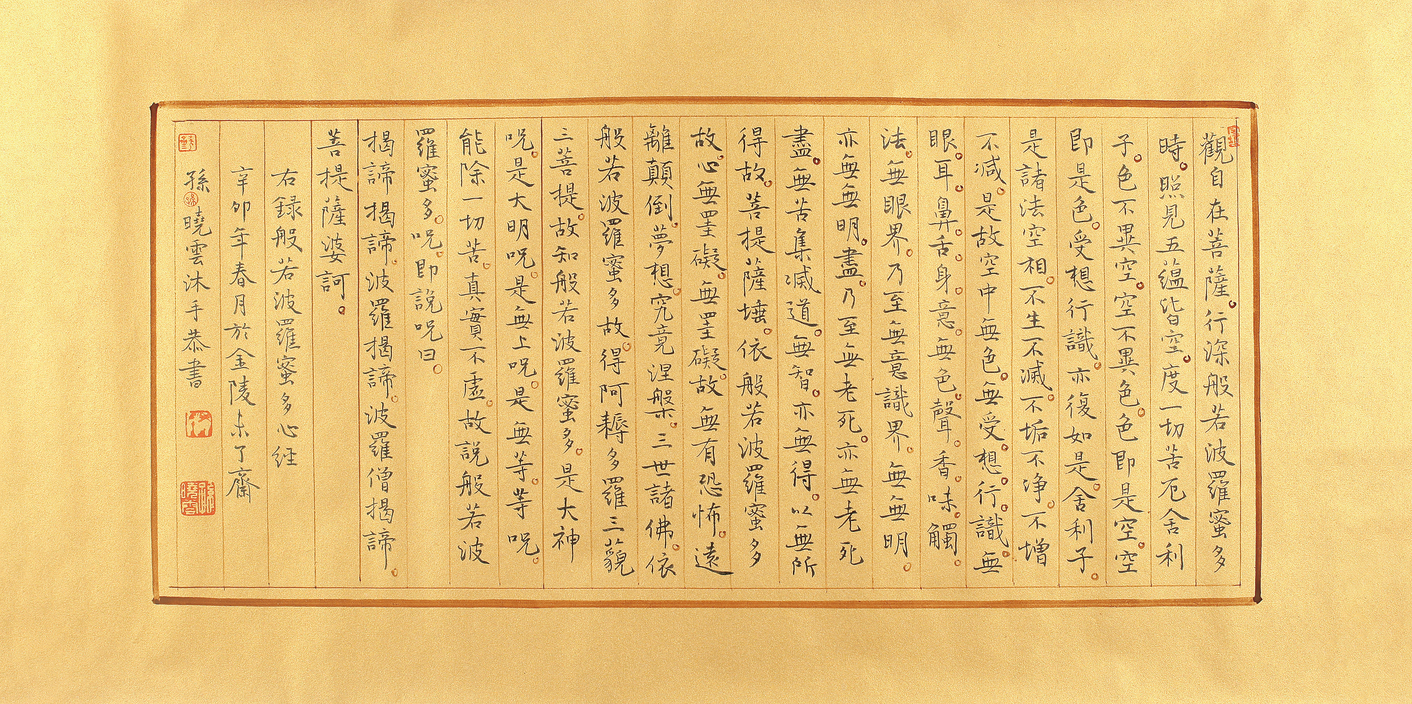 觀自在菩薩。行深般若波羅蜜多
時。照見五蘊皆空。度一切苦厄。舍利
子。色不異空。空不異色。色即是空。空
即是色。受想行識。亦復如是。舍利子。
是諸法空相。不生不滅。不垢不净。不增
不減。是故空中無色。無受。想。行。識。無
眼。耳。鼻。舌。身。意。無色。聲。香。味。觸。
法。無眼界。乃至無意識界。無無明。
亦無無明盡。乃至無老死。亦無老死
盡。無苦集滅道。無智。亦無得。以無所
得故。菩提薩埵。依般若波羅蜜多
故。心無罣礙。無罣礙故。無有恐怖。遠
離顛倒。夢想。究竟涅槃。三世諸佛。依
般若波羅蜜多故。得阿耨多羅三藐
三菩提。故知般若波羅蜜多。是大神
咒。是大明咒。是無上咒。是無等。等咒。
能除一切苦。真實不虛。故說般若波
羅蜜多。咒。即說咒曰。
揭諦揭諦。波羅揭諦。波羅僧揭諦。
菩提薩婆訶。
右録般若波羅蜜多心経
辛卯年春月於金陵未了齋
孫曉雲沐手恭書